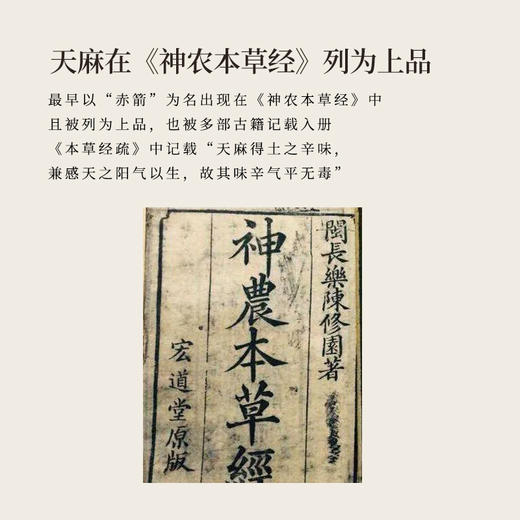 天麻在《神农本草经》列为上品
最早以“赤箭”为名出现在《神农本草经》中
且被列为上品，也被多部古籍记载入册
《本草经疏》中记载“天麻得土之辛味，
兼感天之阳气以生，故其味辛气平无毒”
閩長樂陳修園著
神農本草經
宏道堂原版